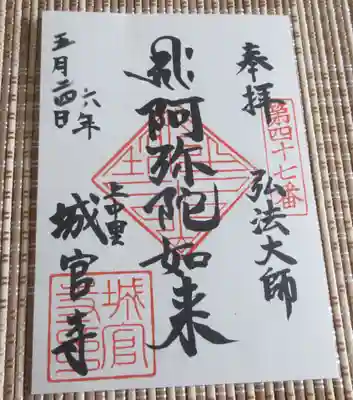 奉拝
第四十七番
弘法大師
阿弥陀如来
上中里
城官寺
六年
五月二四日
城官寺